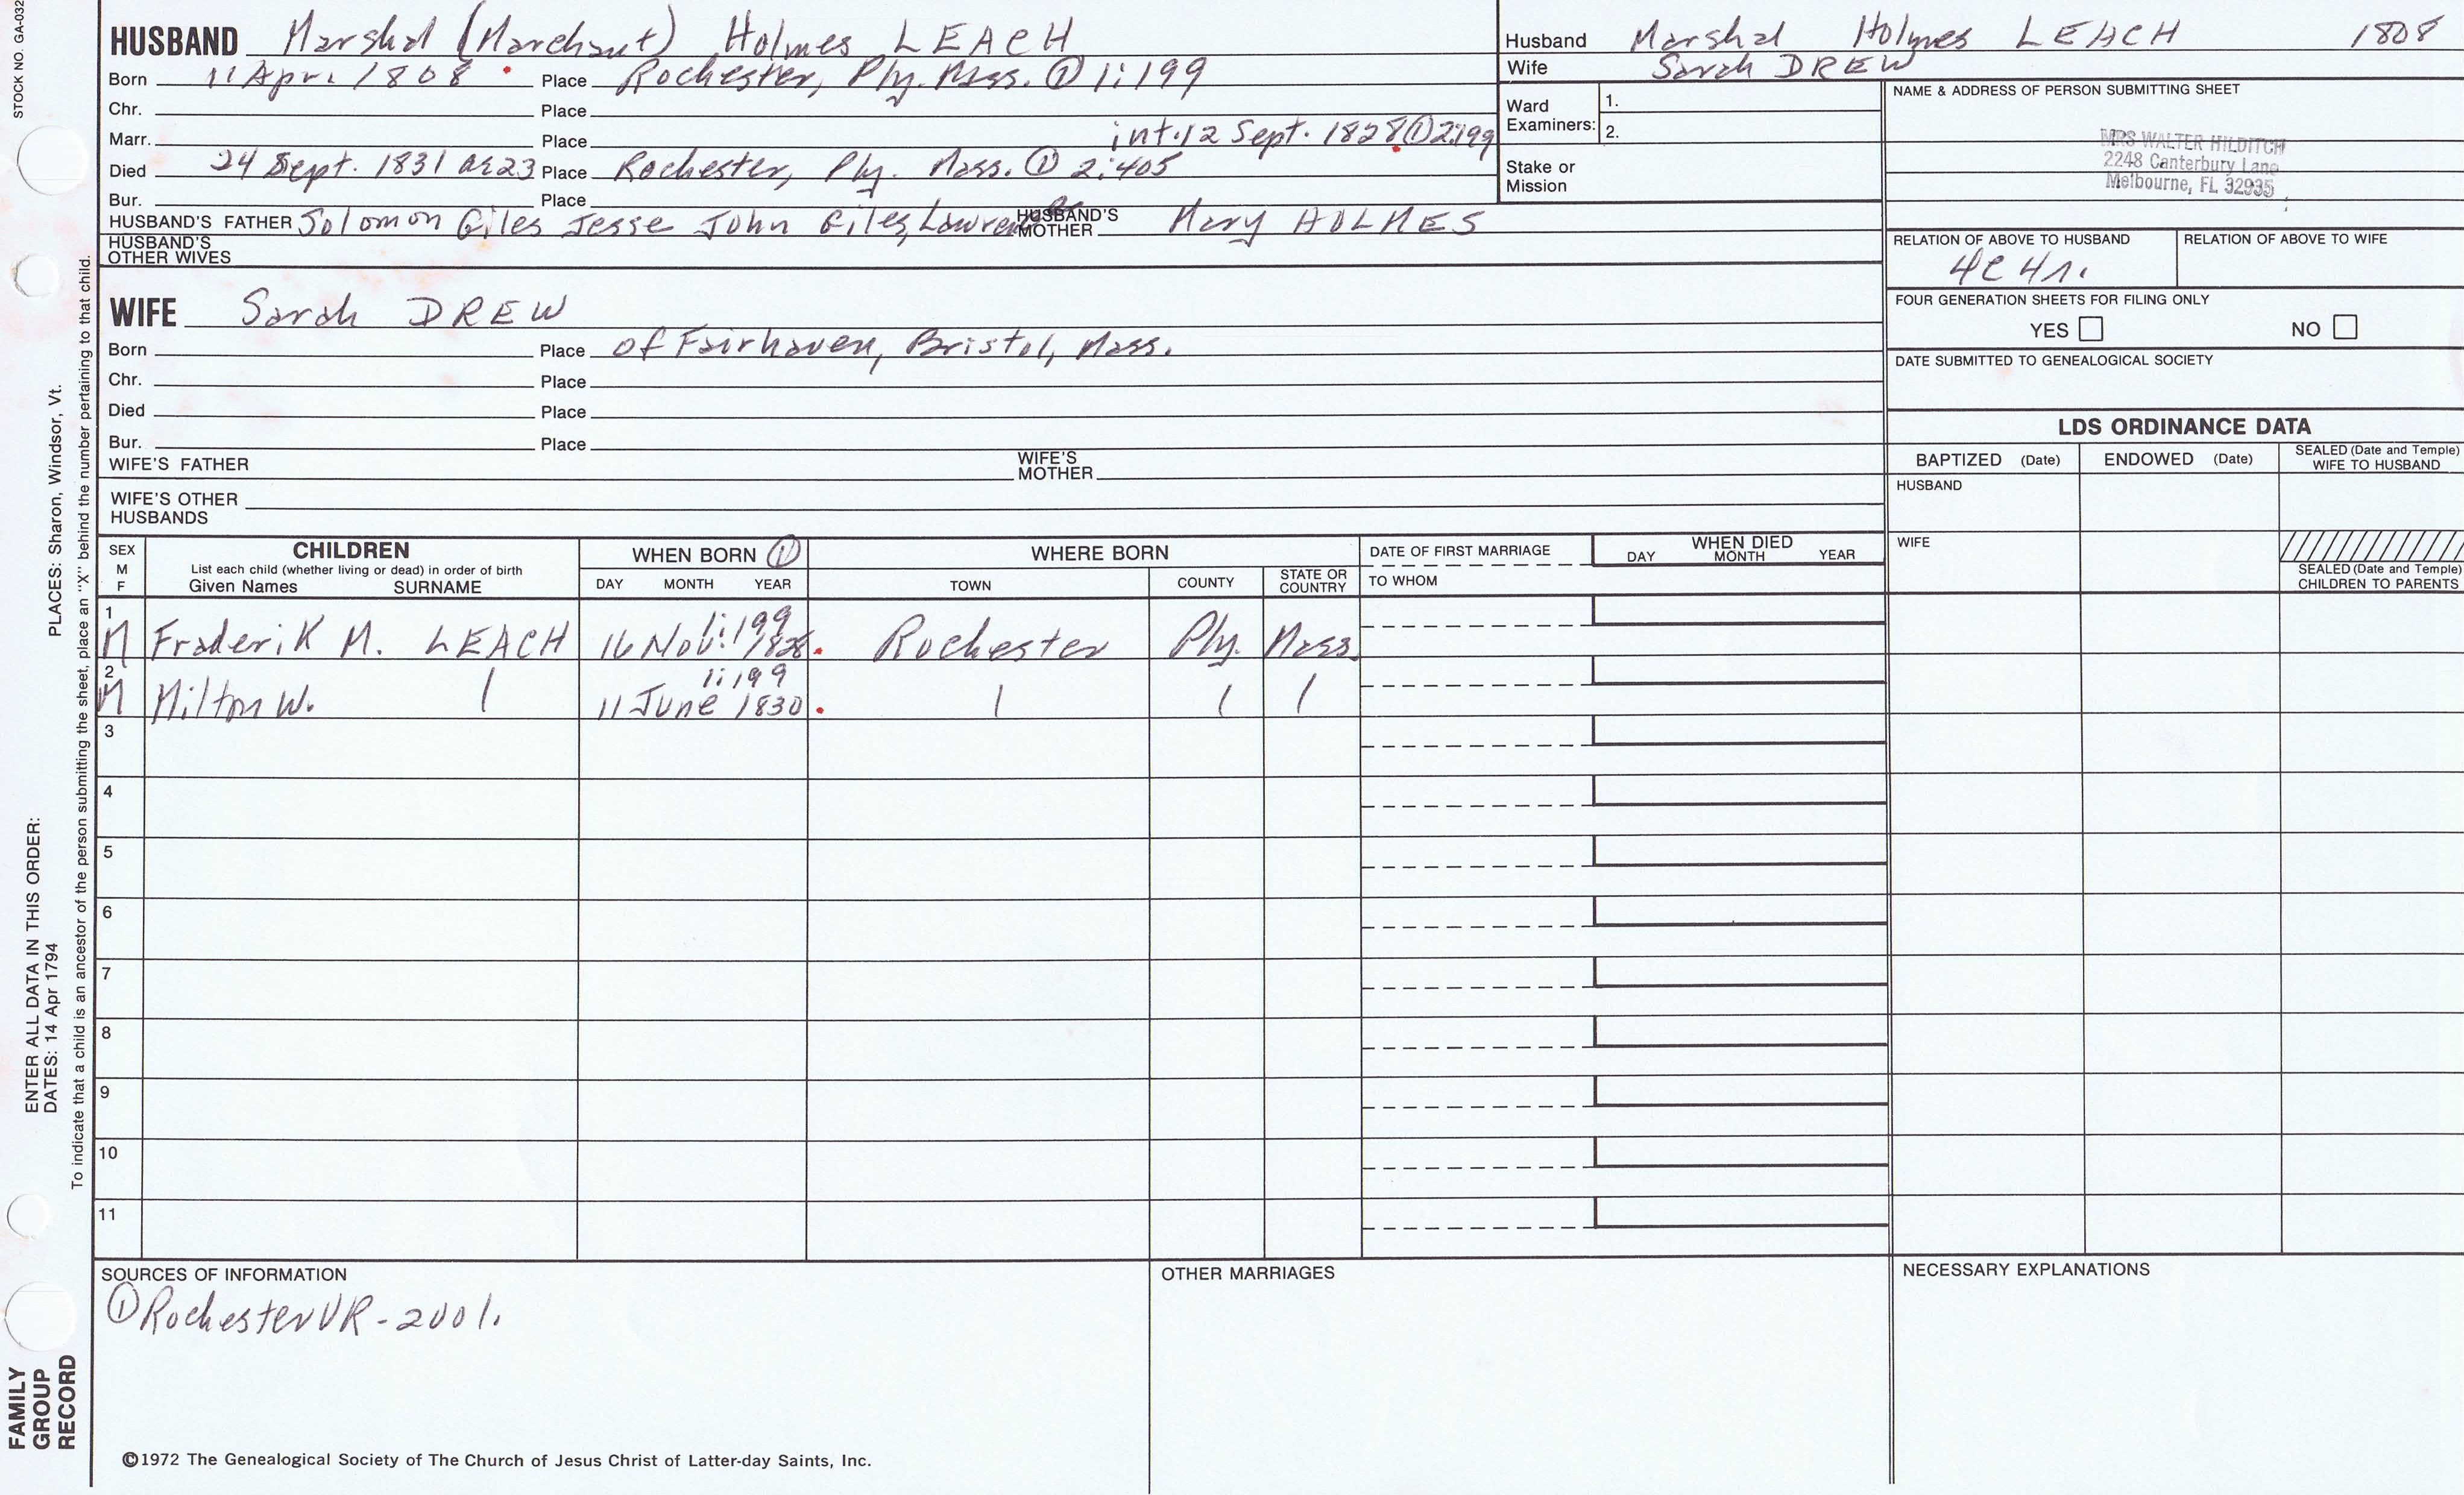 STOCK NO. GA-032
HUSBAND Marshal (Marchant) Holmes LEACH
Born 11 Apr. 1808 Place Rochester, Ply. Mass. ① 1:199
Chr. Place
Marr. Place int. 12 Sept. 1828 ① 2:199
Died 24 Sept. 1831 ae 23 Place Rochester, Ply. Mass. ① 2:405
Bur. Place
HUSBAND'S FATHER Solomon Giles Jesse John Giles, HUSBAND'S MOTHER Mary HOLMES
HUSBAND'S OTHER WIVES
Husband Marshal Holmes LEACH 1808
Wife Sarah DREW
Ward Examiners: 1.
2.
Stake or Mission
NAME & ADDRESS OF PERSON SUBMITTING SHEET
MRS WALTER HILDITCH
2248 Canterbury Lane
Melbourne, FL 32935
RELATION OF ABOVE TO HUSBAND RELATION OF ABOVE TO WIFE
4C 4r.
FOUR GENERATION SHEETS FOR FILING ONLY
YES NO
DATE SUBMITTED TO GENEALOGICAL SOCIETY
WIFE Sarah DREW
Born Place of Fairhaven, Bristol, Mass.
Chr. Place
Died Place
Bur. Place
WIFE'S FATHER WIFE'S MOTHER
WIFE'S OTHER HUSBANDS
LDS ORDINANCE DATA
BAPTIZED (Date) ENDOWED (Date) SEALED (Date and Temple) WIFE TO HUSBAND
HUSBAND
WIFE
SEALED (Date and Temple) CHILDREN TO PARENTS
SEX M F
CHILDREN
List each child (whether living or dead) in order of birth
Given Names SURNAME
WHEN BORN ①
DAY MONTH YEAR
WHERE BORN
TOWN COUNTY STATE OR COUNTRY
DATE OF FIRST MARRIAGE
TO WHOM
WHEN DIED
DAY MONTH YEAR
1 1:199
M Fraderik M. LEACH 16 Nov. 1828. Rochester Ply. Mass.
2 1:199
M Milton W. 11 June 1830.
3
4
5
6
7
8
9
10
11
SOURCES OF INFORMATION
① Rochester VR - 2001.
OTHER MARRIAGES
NECESSARY EXPLANATIONS
©1972 The Genealogical Society of The Church of Jesus Christ of Latter-day Saints, Inc.
FAMILY GROUP RECORD
ENTER ALL DATA IN THIS ORDER:
DATES: 14 Apr 1794
PLACES: Sharon, Windsor, Vt.
To indicate that a child is an ancestor of the person submitting the sheet, place an "X" behind the number pertaining to that child.